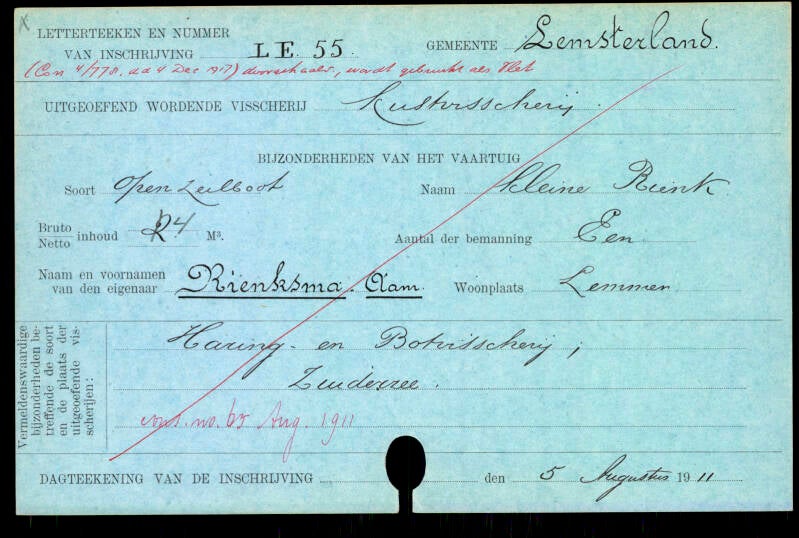 LETTERTEEKEN EN NUMMER
VAN INSCHRIJVING LE. 55. GEMEENTE Lemsterland.
(Con 4/778. dd 4 Dec 1917) doorschaald, wordt gebruikt als Vlet
UITGEOEFEND WORDENDE VISSCHERIJ Kustvisscherij
BIJZONDERHEDEN VAN HET VAARTUIG
Soort Open zeilboot Naam Kleine Rienk.
Bruto
Netto inhoud 4 M³. Aantal der bemanning Een
Naam en voornamen
van den eigenaar Rienksma. Aam. Woonplaats Lemmer.
Vermeldenswaardige
bijzonderheden be-
treffende de soort
en de plaats der
uitgeoefende vis-
scherijen:
Haring- en Botvisscherij;
Zuiderzee.
cons. no. 65 Aug. 1911
DAGTEEKENING VAN DE INSCHRIJVING den 5 Augustus 1911